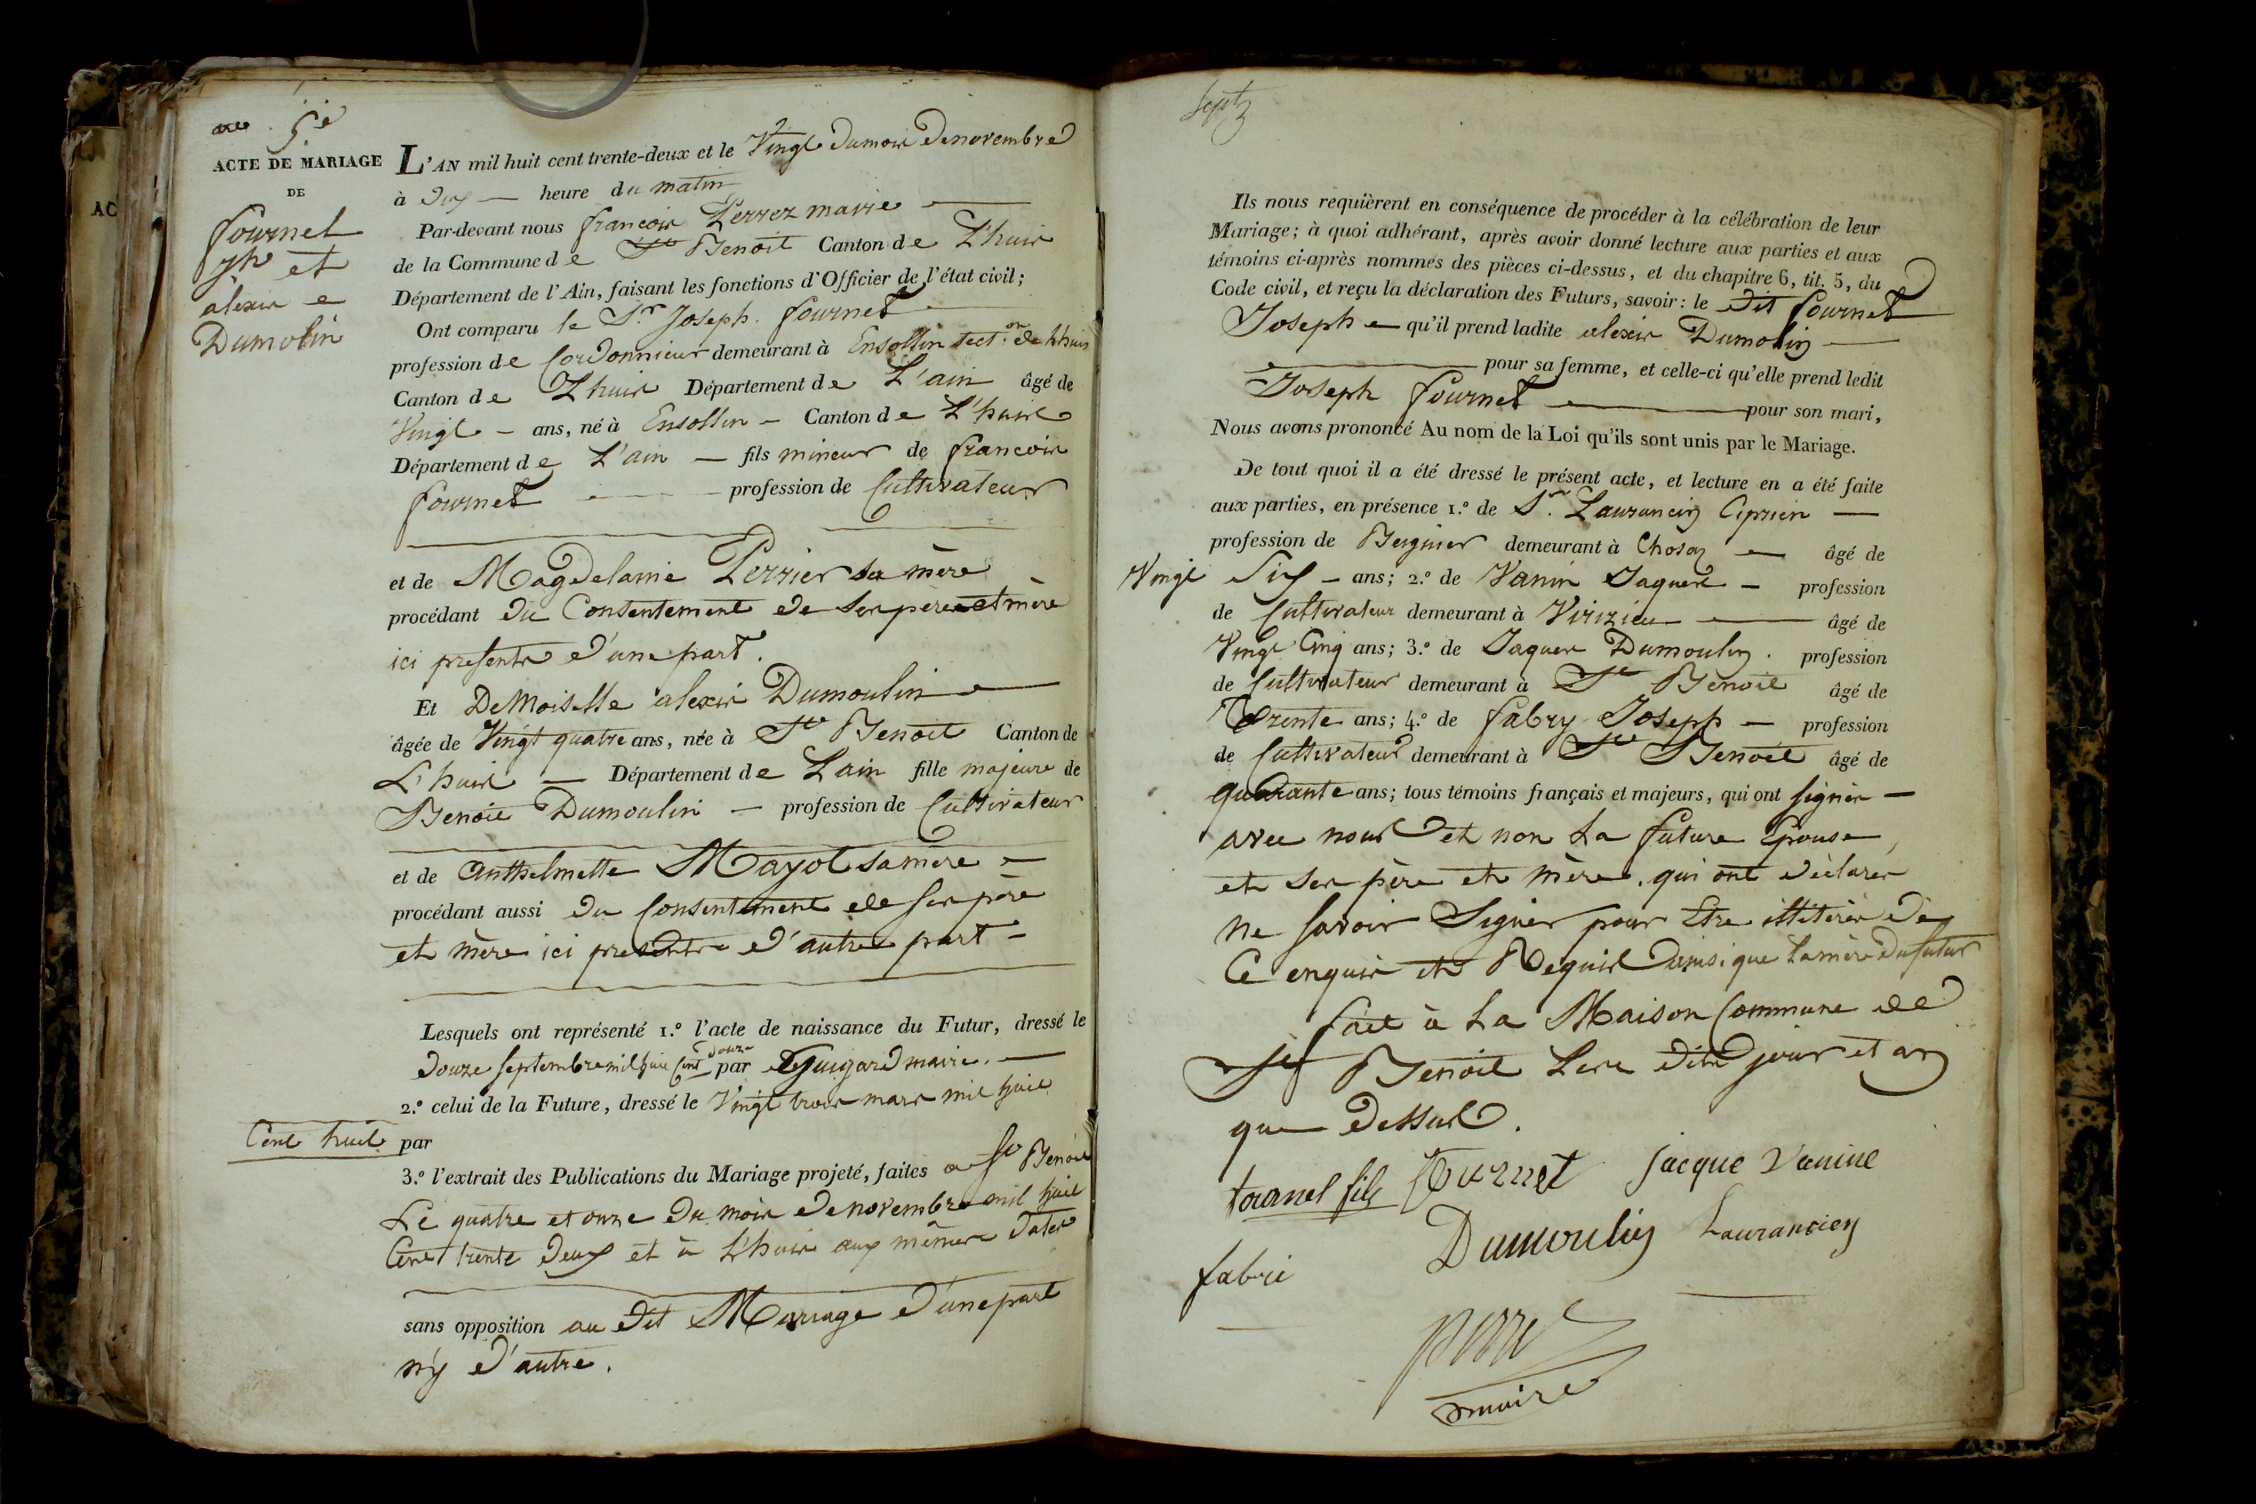 5e
ACTE DE MARIAGE
DE
fournet
jph et
alexis
Dumolin
L'AN mil huit cent trente-deux et le Vingt du mois de novembre
à dix heure du matin
Par-devant nous françois Perrez maire
de la Commune de St Benoit Canton de L'huis
Département de l'Ain, faisant les fonctions d'Officier de l'état civil;
Ont comparu le Sr. Joseph fournet
profession de Cordonnieur demeurant à Ensollin sect.on de Lhuis
Canton de Lhuis Département de L'ain âgé de
Vingt ans, né à Ensollin Canton de L'huis
Département de L'ain fils mineur de francois
fournet profession de Cultivateur
et de Magdelaine Perrier sa mère
procédant du Consentement de ses père et mère
ici presents d'une part.
Et DeMoiselle alexis Dumoulin
âgée de Vingt quatre ans, née à St Benoit Canton de
L'huis Département de Lain fille majeure de
Benoit Dumoulin profession de Cultivateur
et de Anthelmette Mayot sa mère
procédant aussi du Consentement de ses père
et mère ici presents d'autre part
Lesquels ont représenté 1.º l'acte de naissance du Futur, dressé le
douze septembre mil huit Cent douze par Guigard maire.
2.º celui de la Future, dressé le Vingt trois mars mil huit
Cent huit par
3.º l'extrait des Publications du Mariage projeté, faites a St Benoit
Le quatre et onze du mois de novembre mil huit
Cent trente deux et à L'huis aux mêmes dates
sans opposition au dit Mariage d'une part
n'y d'autre.
Ils nous requièrent en conséquence de procéder à la célébration de leur
Mariage; à quoi adhérant, après avoir donné lecture aux parties et aux
témoins ci-après nommés des pièces ci-dessus, et du chapitre 6, tit. 5, du
Code civil, et reçu la déclaration des Futurs, savoir: le dit fournet
Joseph qu'il prend ladite alexis Dumolin
pour sa femme, et celle-ci qu'elle prend ledit
Joseph fournet pour son mari,
Nous avons prononcé Au nom de la Loi qu'ils sont unis par le Mariage.
De tout quoi il a été dressé le présent acte, et lecture en a été faite
aux parties, en présence 1.º de Sr. Laurancin Ciprien
profession de demeurant à Chosas âgé de
Vingt Six ans; 2.º de Vanin Jaques profession
de Cultivateur demeurant à Virizieu âgé de
Vingt Cinq ans; 3.º de Jaques Dumoulin. profession
de Cultivateur demeurant à St Benoit âgé de
Trente ans; 4.º de fabry Joseph profession
de Cultivateur demeurant à St Benoit âgé de
quarante ans; tous témoins français et majeurs, qui ont signés
avec nous et non La future Epouse,
et ses père et mère. qui ont déclarés
ne savoir Signer pour Etre illitérés de
Ce enquis et Requis ainsi que La mère du futur
fait à La Maison Commune de
St Benoit Les dits jour et an
que Dessus.
fournet jacque vanine
Dumoulin Laurancien
fabri
perret
maire